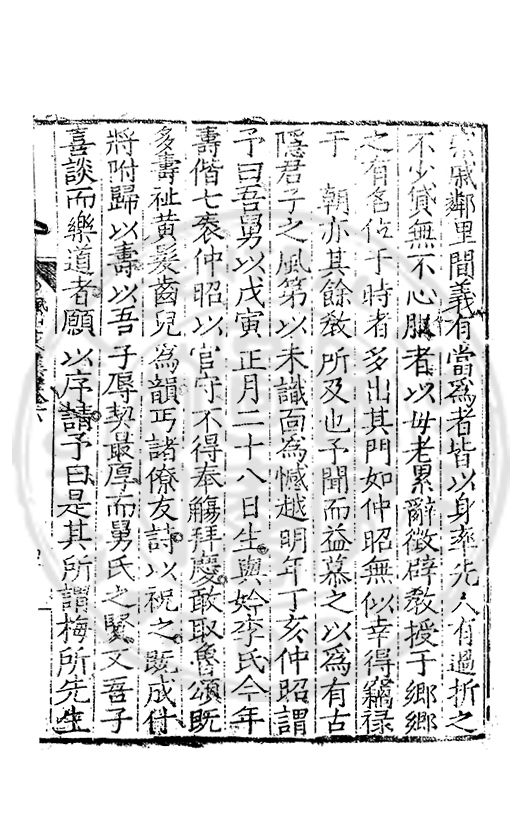 戚鄰里間義有當爲者皆以身率先人有過折之
不少貸無不心服者以母老累辭徵辟教授于鄉鄉
之有名位于時者多出其門如仲昭無似幸得竊祿
于　朝亦其餘教所及也予聞而益慕之以爲有古
隱君子之風第以未識面爲憾越明年丁亥仲昭謂
予曰吾舅以戊寅正月二十八日生與妗李氏今年
壽偕七袠仲昭以官守不得奉觴拜慶敢取魯頌旣
多壽祉黃髮齒兒爲韻丐諸僚友詩以祝之旣成什
將附歸以壽以吾子辱契最厚而舅氏之賢又吾子
喜談而樂道者願以序請予曰是其所謂梅所先生